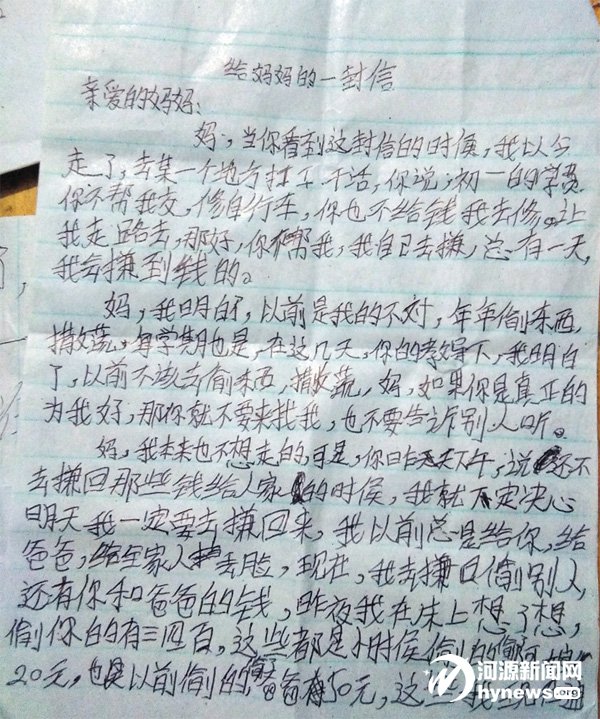 给妈妈的一封信
亲爱的妈妈:
妈,当你看到这封信的时候,我以今
走了,去某一个地方打工干活,你说,初一的学费
你不帮我交,修自行车,你也不给钱我去修。让
我走路去,那好,你不帮我,我自已去赚,总有一天,
我会赚到钱的。
妈,我明白了,以前是我的不对,年年偷东西,
撒谎,每学期也是,在这几天,你的教导下,我明白
了,以前不该去偷东西,撒谎,妈,如果你是真正的
为我好,那你就不要来找我,也不要告诉别人听。
妈,我本来也不想走的,可是,你昨天下午,说还不
去赚回那些钱给人家的时候,我就下定决心
明天我一定要去赚回来,我以前总是给你,给
爸爸,给全家人丢脸,现在,我去赚回偷别人,
还有你和爸爸的钱,昨夜我在床上想了想,
偷你的有三四百,这些都是小时候偷的,
20元,也是以前偷的,爸爸有50元,这些我
河源新闻网
hynews.org